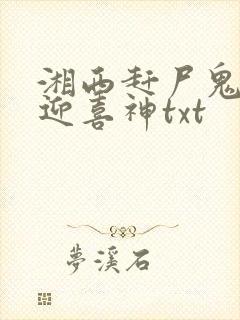 湘西赶尸鬼
迎喜神txt
夢溪石